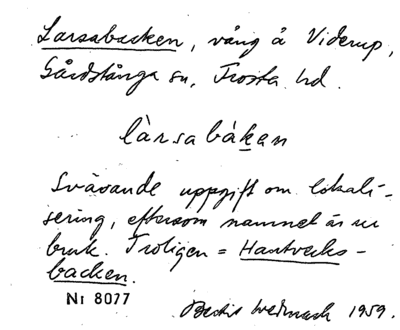 Larsabacken, vång å Viderup,
Gårdstånga sn, Frosta hd.
làrsabàkan
Svävande uppgift om lokali-
sering, eftersom namnet är ur
bruk. Troligen = Hantverks-
backen.
NI 8077
Bertil 1959.